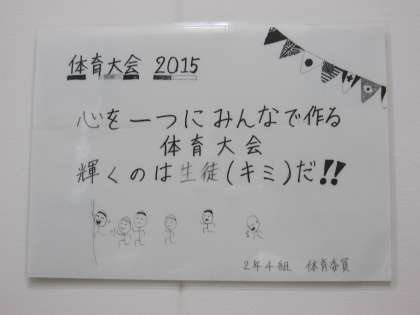 体育大会 2015
心を一つにみんなで作る
体育大会
輝くのは生徒(キミ)だ!!
2年4組 体育委員